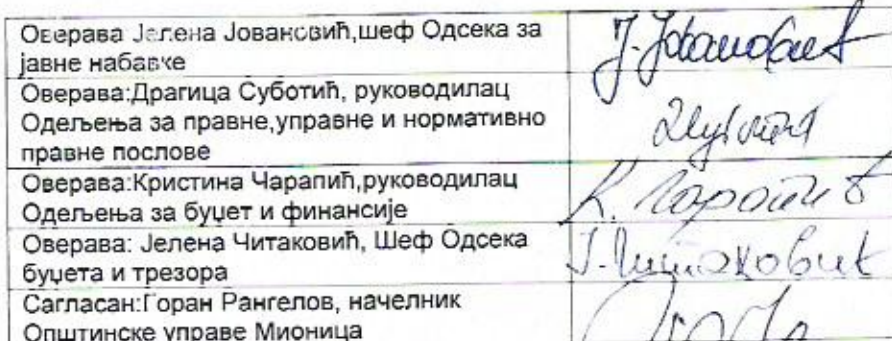 Оверава Јелена Јовановић,шеф Одсека за
јавне набавке
Ј.Јовановић
Оверава:Драгица Суботић, руководилац
Одељења за правне,управне и нормативно
правне послове
Оверава:Кристина Чарапић,руководилац
Одељења за буџет и финансије
К. Чарапић
Оверава: Јелена Читаковић, Шеф Одсека
буџета и трезора
Ј. Читаковић
Сагласан:Горан Рангелов, начелник
Општинске управе Мионица